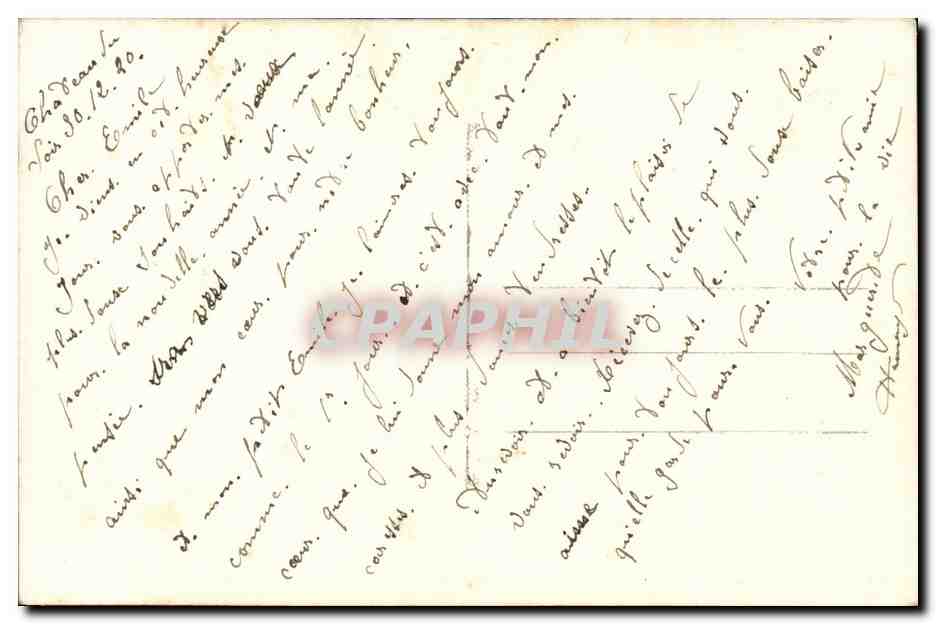 Chateau du
Loir 30.12.20.
Cher. Emile
Je. viens. en cet. heureuse
Jour. vous. apporter. mes.
plus. Doux Souhaits. et. vœux
pour. la nouvelle. année. et. ma.
pensée. vers vous. toute l'année.
ainsi que mon cœur. pour. notre bonheur.
et. mon. petit Emile. je. t'aimes. toujours.
comme. le 1r. jour. et c'est. avec. tout. mon.
cœur. que. je lui. mon amour. et mes
caresses. et plus tendresses.
Aurevoir. et a bientôt le plaisir de
vous. revoir. Recevez. de celle. qui vous.
aime pour. toujours. le. plus. doux baiser.
qu'elle garde pour. vous.
Votre. petite amie
pour. la vie
Marguerite
Henry
CPAPHIL